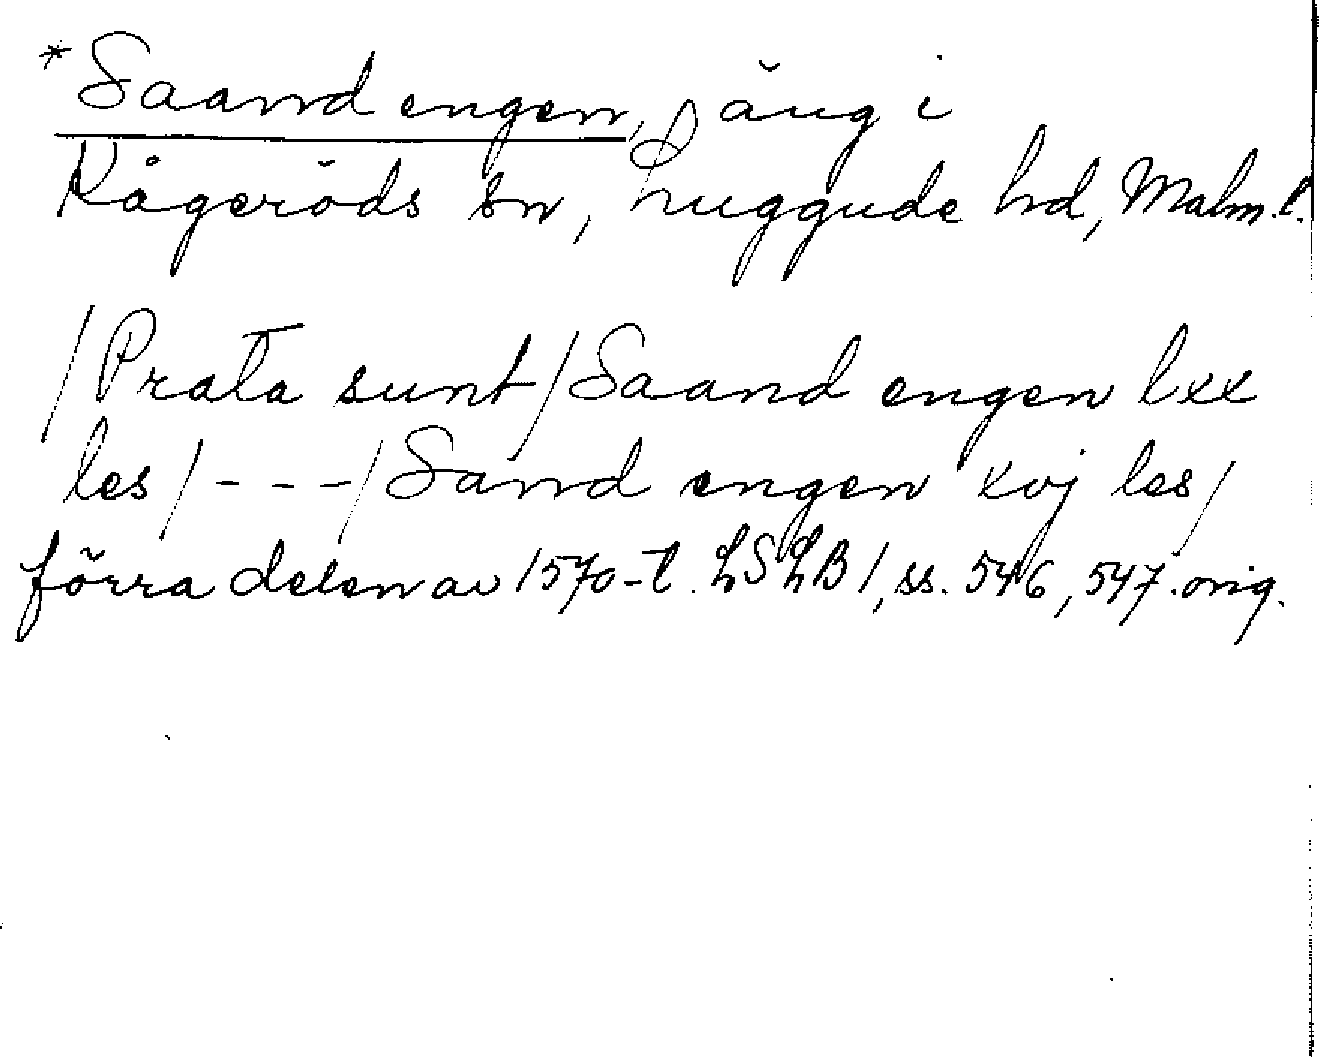 *Saand engen, äng i
Kågeröds sn, Luggude hd, Malm.l.
/Prata sunt/Saand engen lxx
les/---/Sand engen xvj les/
förra delen av 1570-t. LSLB 1, ss. 546, 547. orig.